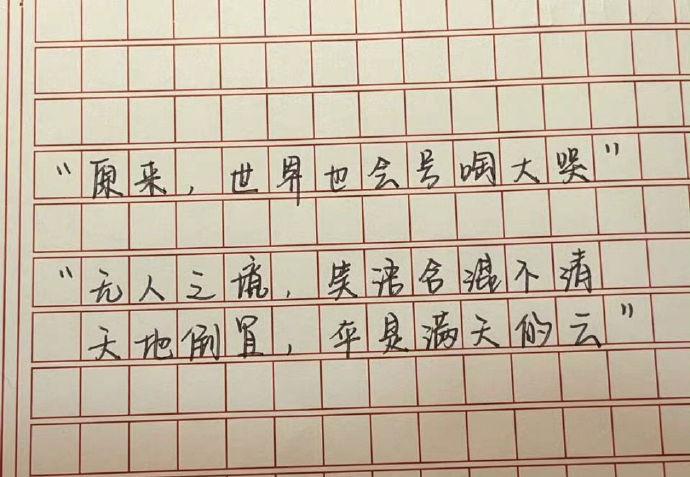 “原来，世界也会号啕大哭”
“无人之境，笑语含混不清
天地倒置，伞是满天的云”